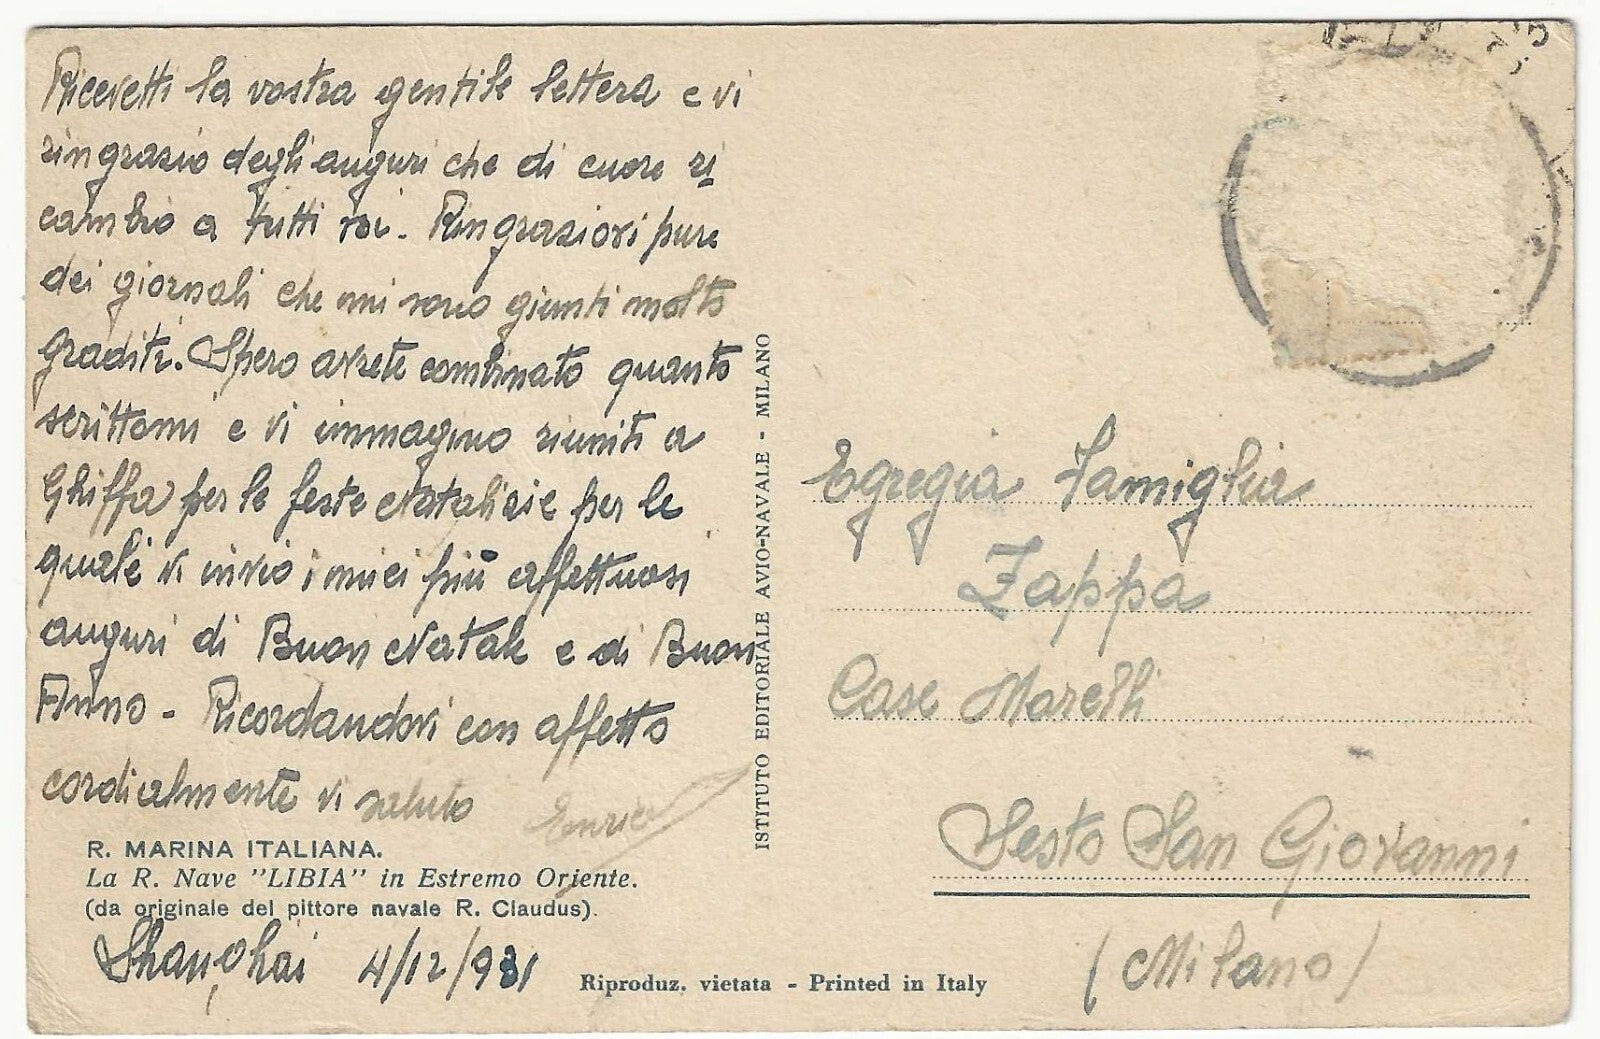 Ricevetti la vostra gentile lettera e vi
ringrazio degli auguri che di cuore ri
cambio a tutti voi. Ringraziovi pure
dei giornali che mi sono giunti molto
graditi. Spero avrete combinato quanto
scrittomi e vi immagino riuniti a
Ghiffa per le feste Natalizie per le
quale vi invio i miei più affettuosi
auguri di Buon Natale e di Buon
Anno - Ricordandovi con affetto
cordialmente vi saluto Enrico
R. MARINA ITALIANA.
La R. Nave "LIBIA" in Estremo Oriente.
(da originale del pittore navale R. Claudus).
Shanghai 4/12/931
Riproduz. vietata - Printed in Italy
ISTITUTO EDITORIALE AVIO-NAVALE - MILANO
Egregia Famiglia
Zappa
Case Marelli
Sesto San Giovanni
(Milano)